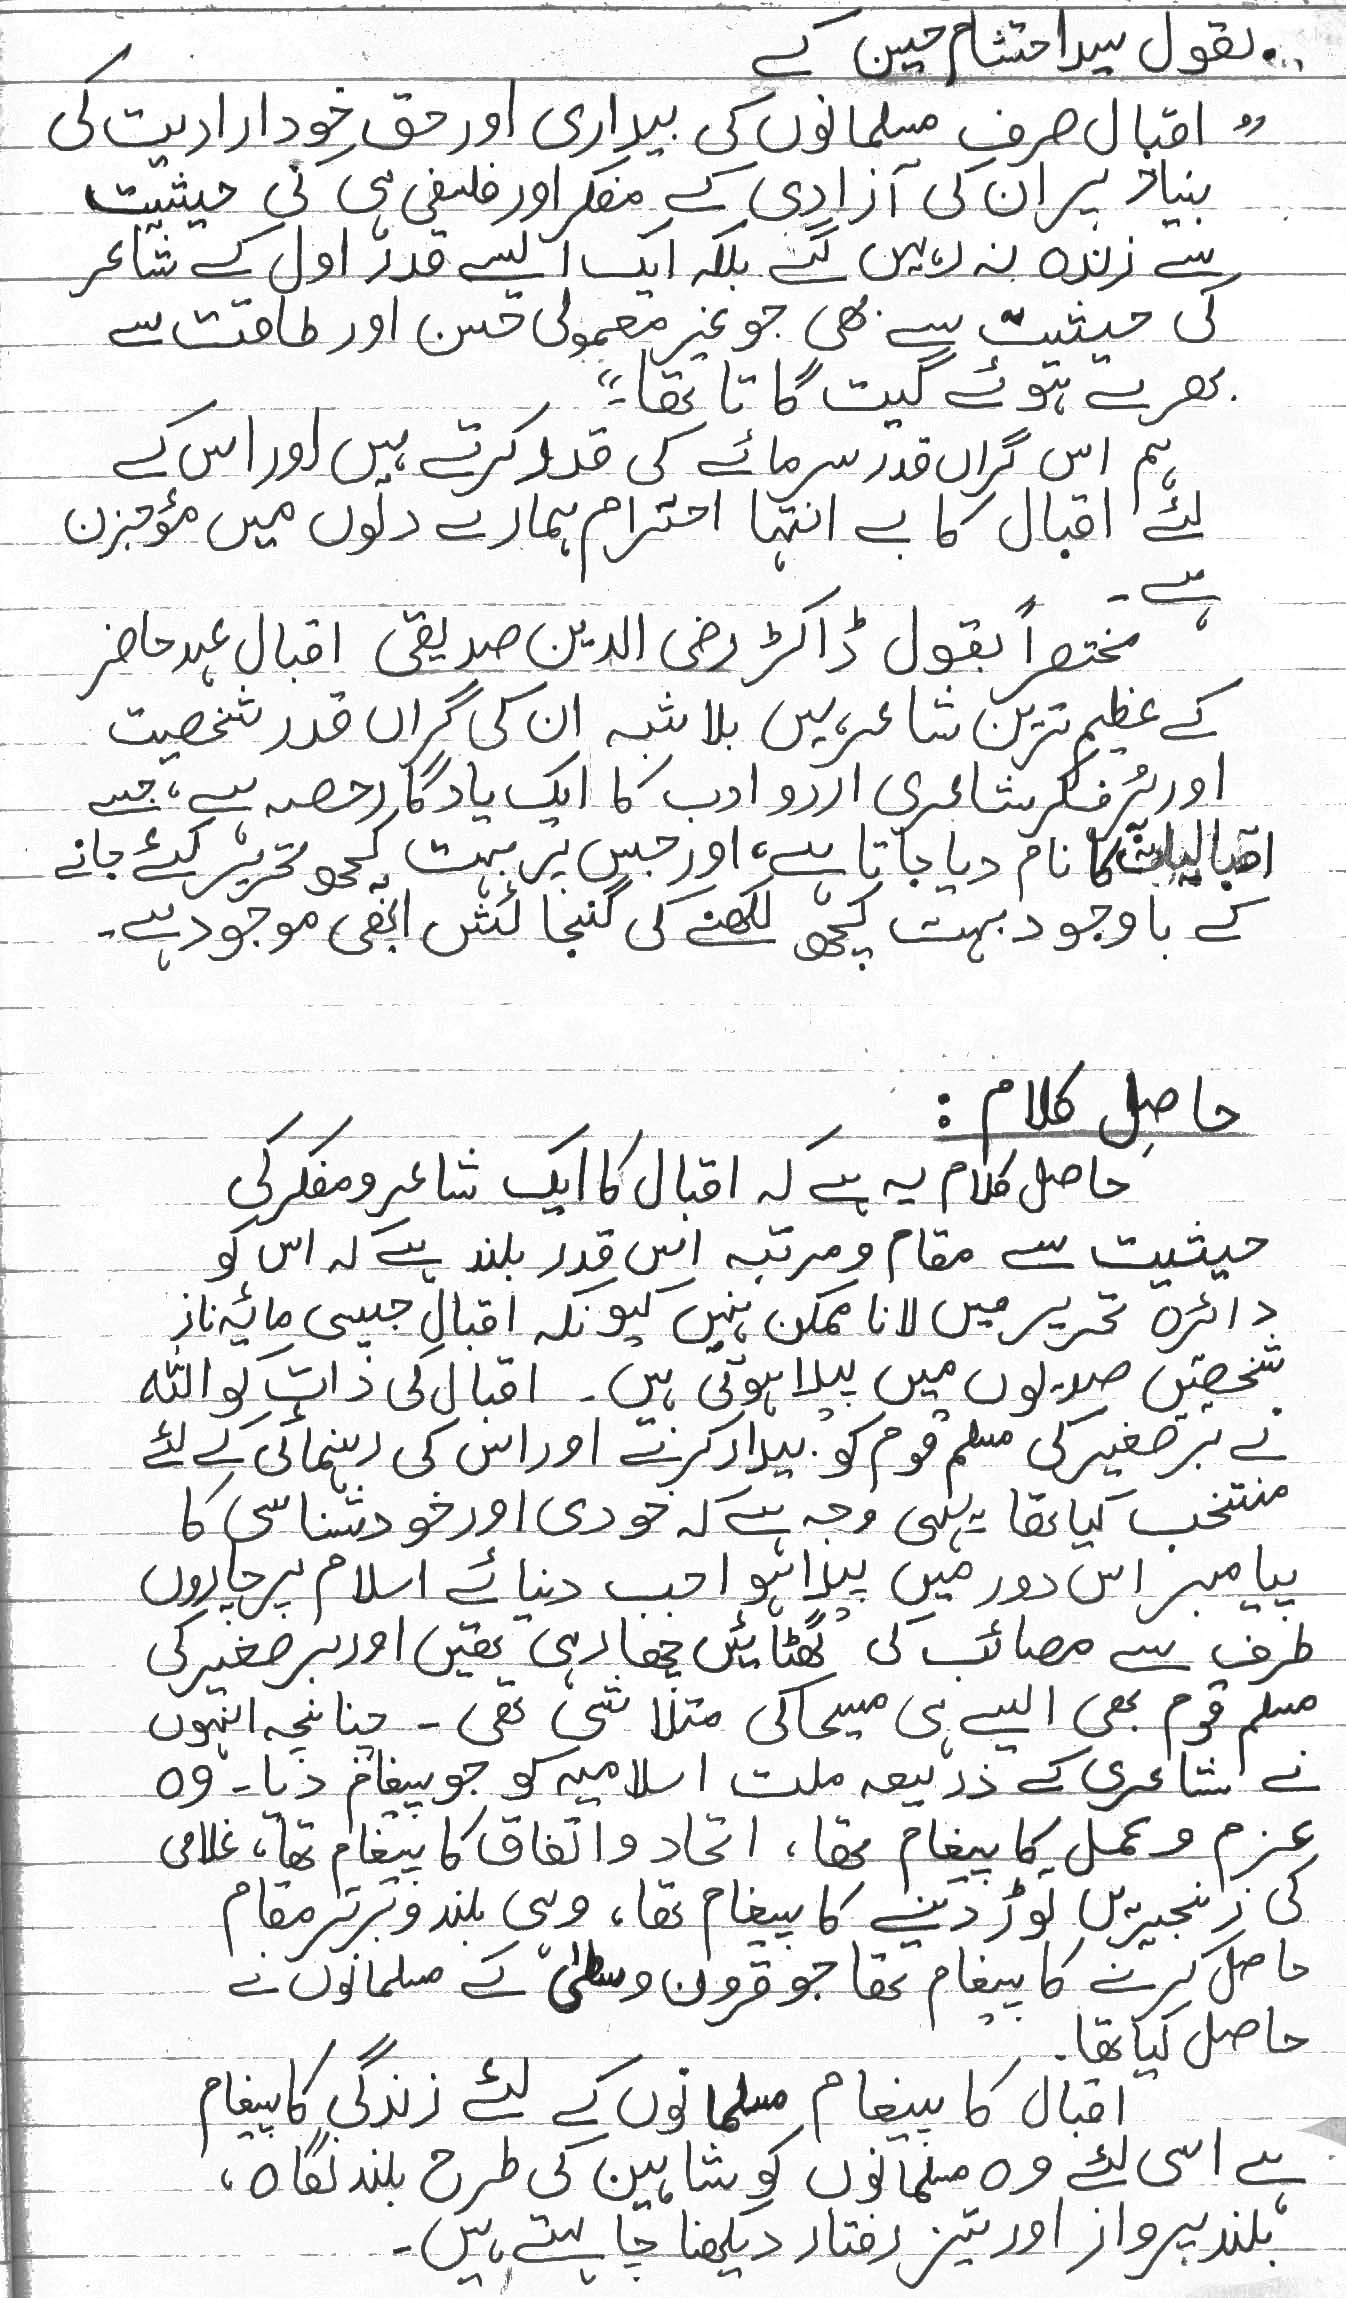 ..بقول سید احتشام حسین کے
"اقبال صرف مسلمانوں کی بیداری اور حق خودارادیت کی
بنیاد پر ان کی آزادی کے مفکر اور فلسفی ہی کی حیثیت
سے زندہ نہ رہیں گے بلکہ ایک ایسے قدر اول کے شاعر
کی حیثیت سے بھی جو غیر معمولی حسن اور طاقت سے
بھرے ہوئے گیت گاتا تھا۔"
ہم اس گراں قدر سرمائے کی قدر کرتے ہیں اور اس کے
لئے اقبال کا بے انتہا احترام ہمارے دلوں میں مؤجزن
ہے۔
مختصراً بقول ڈاکٹر رضی الدین صدیقی اقبال عہد حاضر
کے عظیم ترین شاعر ہیں بلا شبہ ان کی گراں قدر شخصیت
اور پُر فکر شاعری اردو ادب کا ایک یادگار حصہ ہے، جسے
اقبالیات کا نام دیا جاتا ہے، اور جس پر بہت کچھ تحریر کئے جانے
کے باوجود بہت کچھ لکھنے کی گنجائش ابھی موجود ہے۔
حاصلِ کلام :
حاصل کلام یہ ہے کہ اقبال کا ایک شاعر و مفکر کی
حیثیت سے مقام و مرتبہ اس قدر بلند ہے کہ اس کو
دائرہ تحریر میں لانا ممکن نہیں کیونکہ اقبال جیسی مائیہ ناز
شخصیتں صدیوں میں پیدا ہوتی ہیں۔ اقبال کی ذات کو اللہ
نے برصغیر کی مسلم قوم کو بیدار کرنے اور اس کی رہنمائی کے لئے
منتخب کیا تھا یہی وجہ ہے کہ خودی اور خود شناسی کا
پیامبر اس دور میں پیدا ہوا جب دنیائے اسلام پر چاروں
طرف سے مصائب کی گھٹائیں چھا رہی تھیں اور برصغیر کی
مسلم قوم بھی ایسے ہی مسیحا کی متلاشی تھی۔ چنانچہ انہوں
نے شاعری کے ذریعہ ملت اسلامیہ کو جو پیغام دیا۔ وہ
عزم و عمل کا پیغام تھا، اتحاد و اتفاق کا پیغام تھا، غلامی
کی زنجیریں توڑ دینے کا پیغام تھا، وہی بلند و برتر مقام
حاصل کرنے کا پیغام تھا جو قرون وسطیٰ کے مسلمانوں نے
حاصل کیا تھا۔
اقبال کا پیغام مسلمانوں کے لئے زندگی کا پیغام
ہے اسی لئے وہ مسلمانوں کو شاہین کی طرح بلند نگاہ،
بلند پرواز اور تیز رفتار دیکھنا چاہتے ہیں۔